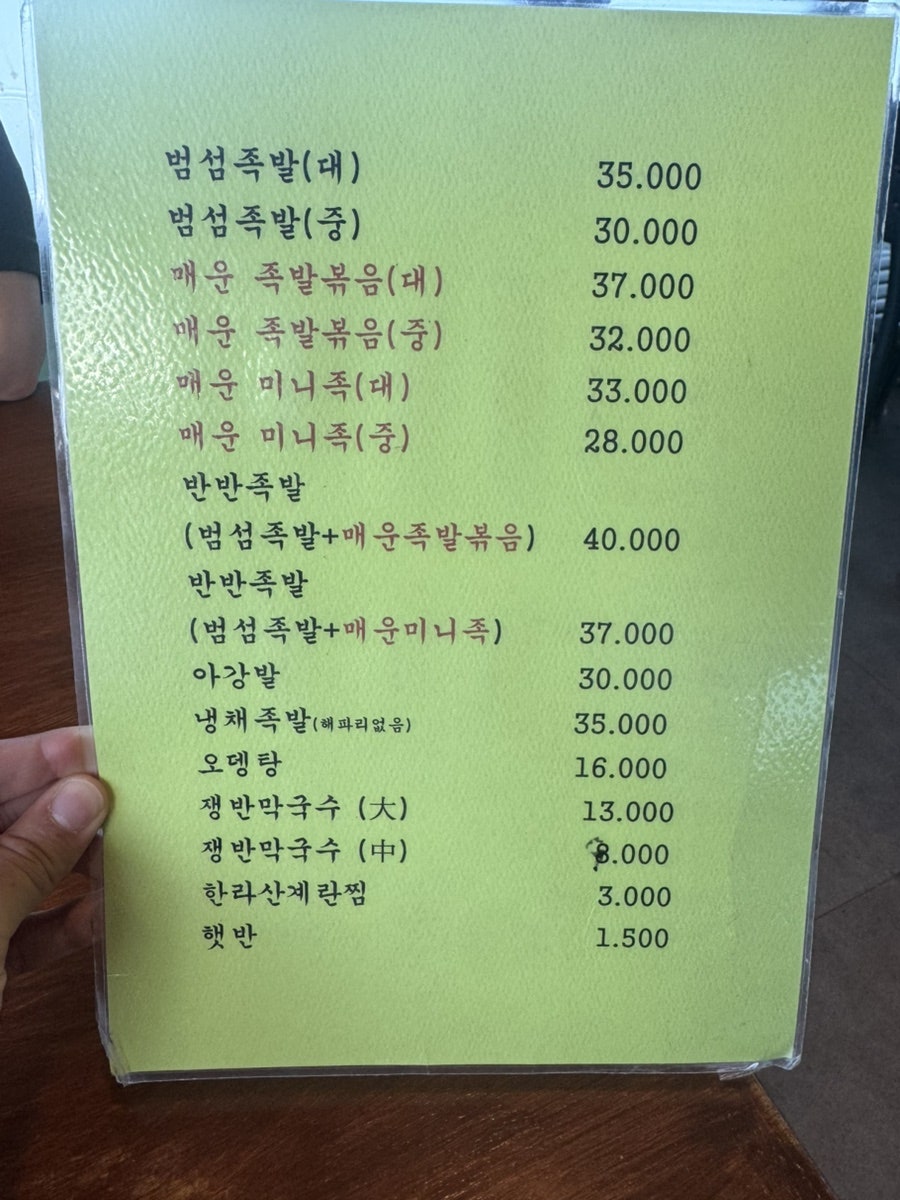 범섬족발(대) 35.000
범섬족발(중) 30.000
매운 족발볶음(대) 37.000
매운 족발볶음(중) 32.000
매운 미니족(대) 33.000
매운 미니족(중) 28.000
반반족발
(범섬족발+매운족발볶음) 40.000
반반족발
(범섬족발+매운미니족) 37.000
아강발 30.000
냉채족발(해파리없음) 35.000
오뎅탕 16.000
쟁반막국수 (大) 13.000
쟁반막국수 (中)
한라산계란찜 3.000
햇반 1.500